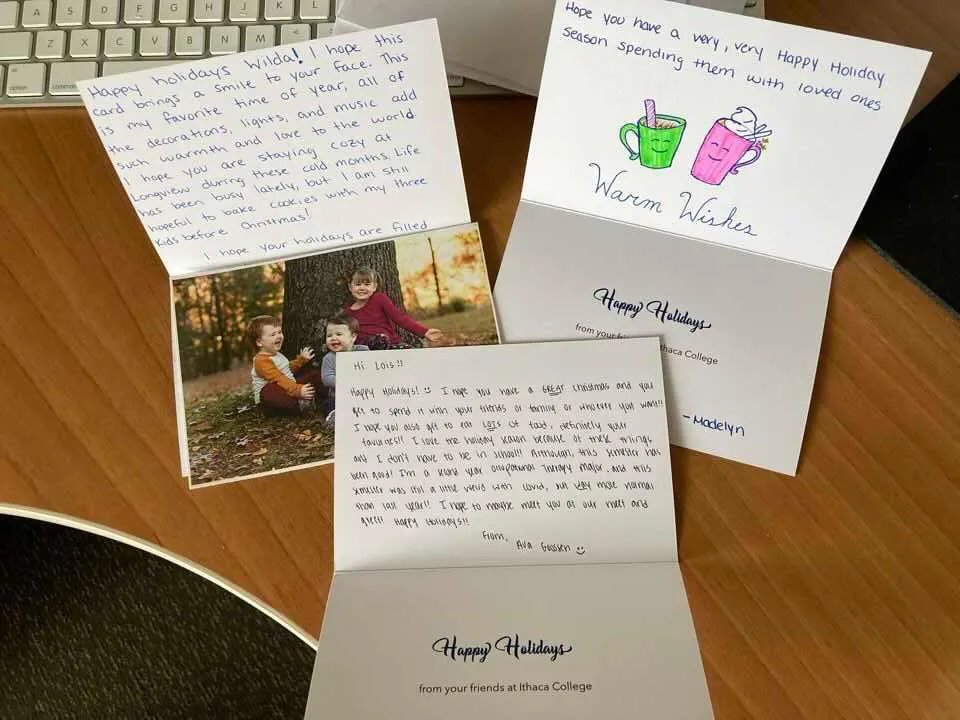 A S D F G H J K L
Z X C V B N M
option
command
Happy holidays Wilda! I hope this
card brings a smile to your face. This
is my favorite time of year, all of
the decorations, lights, and music add
such warmth and love to the world.
I hope you are staying cozy at
Longview during these cold months. Life
has been busy lately, but I am still
hopeful to bake cookies with my three
kids before Christmas!
I hope your holidays are filled
Hope you have a very, very Happy Holiday
season spending them with loved ones
Warm Wishes
Happy Holidays
from your
Ithaca College
-Madelyn
Hi Lois!!
Happy Holidays! I hope you have a GREAT Christmas and you
get to spend it with your friends or family or whoever you want!!
I hope you also get to eat LOTS of food, definitely your
favorites!! I love the holiday season because of these things
and I don't have to be in school!! Although, this semester has
been good! I'm a second year occupational therapy major, and this
semester was still a little weird with covid, but way more normal
than last year!! I hope to maybe meet you at our meet and
greet! Happy Holidays!!
From,
Ava
Happy Holidays
from your friends at Ithaca College